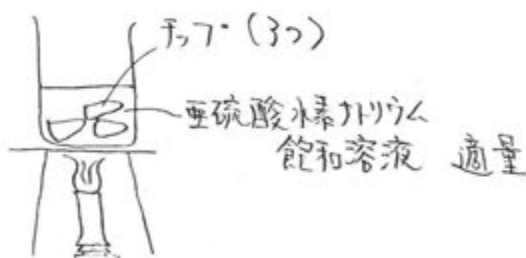 チップ(3つ)
亜硫酸水素ナトリウム
飽和溶液 適量